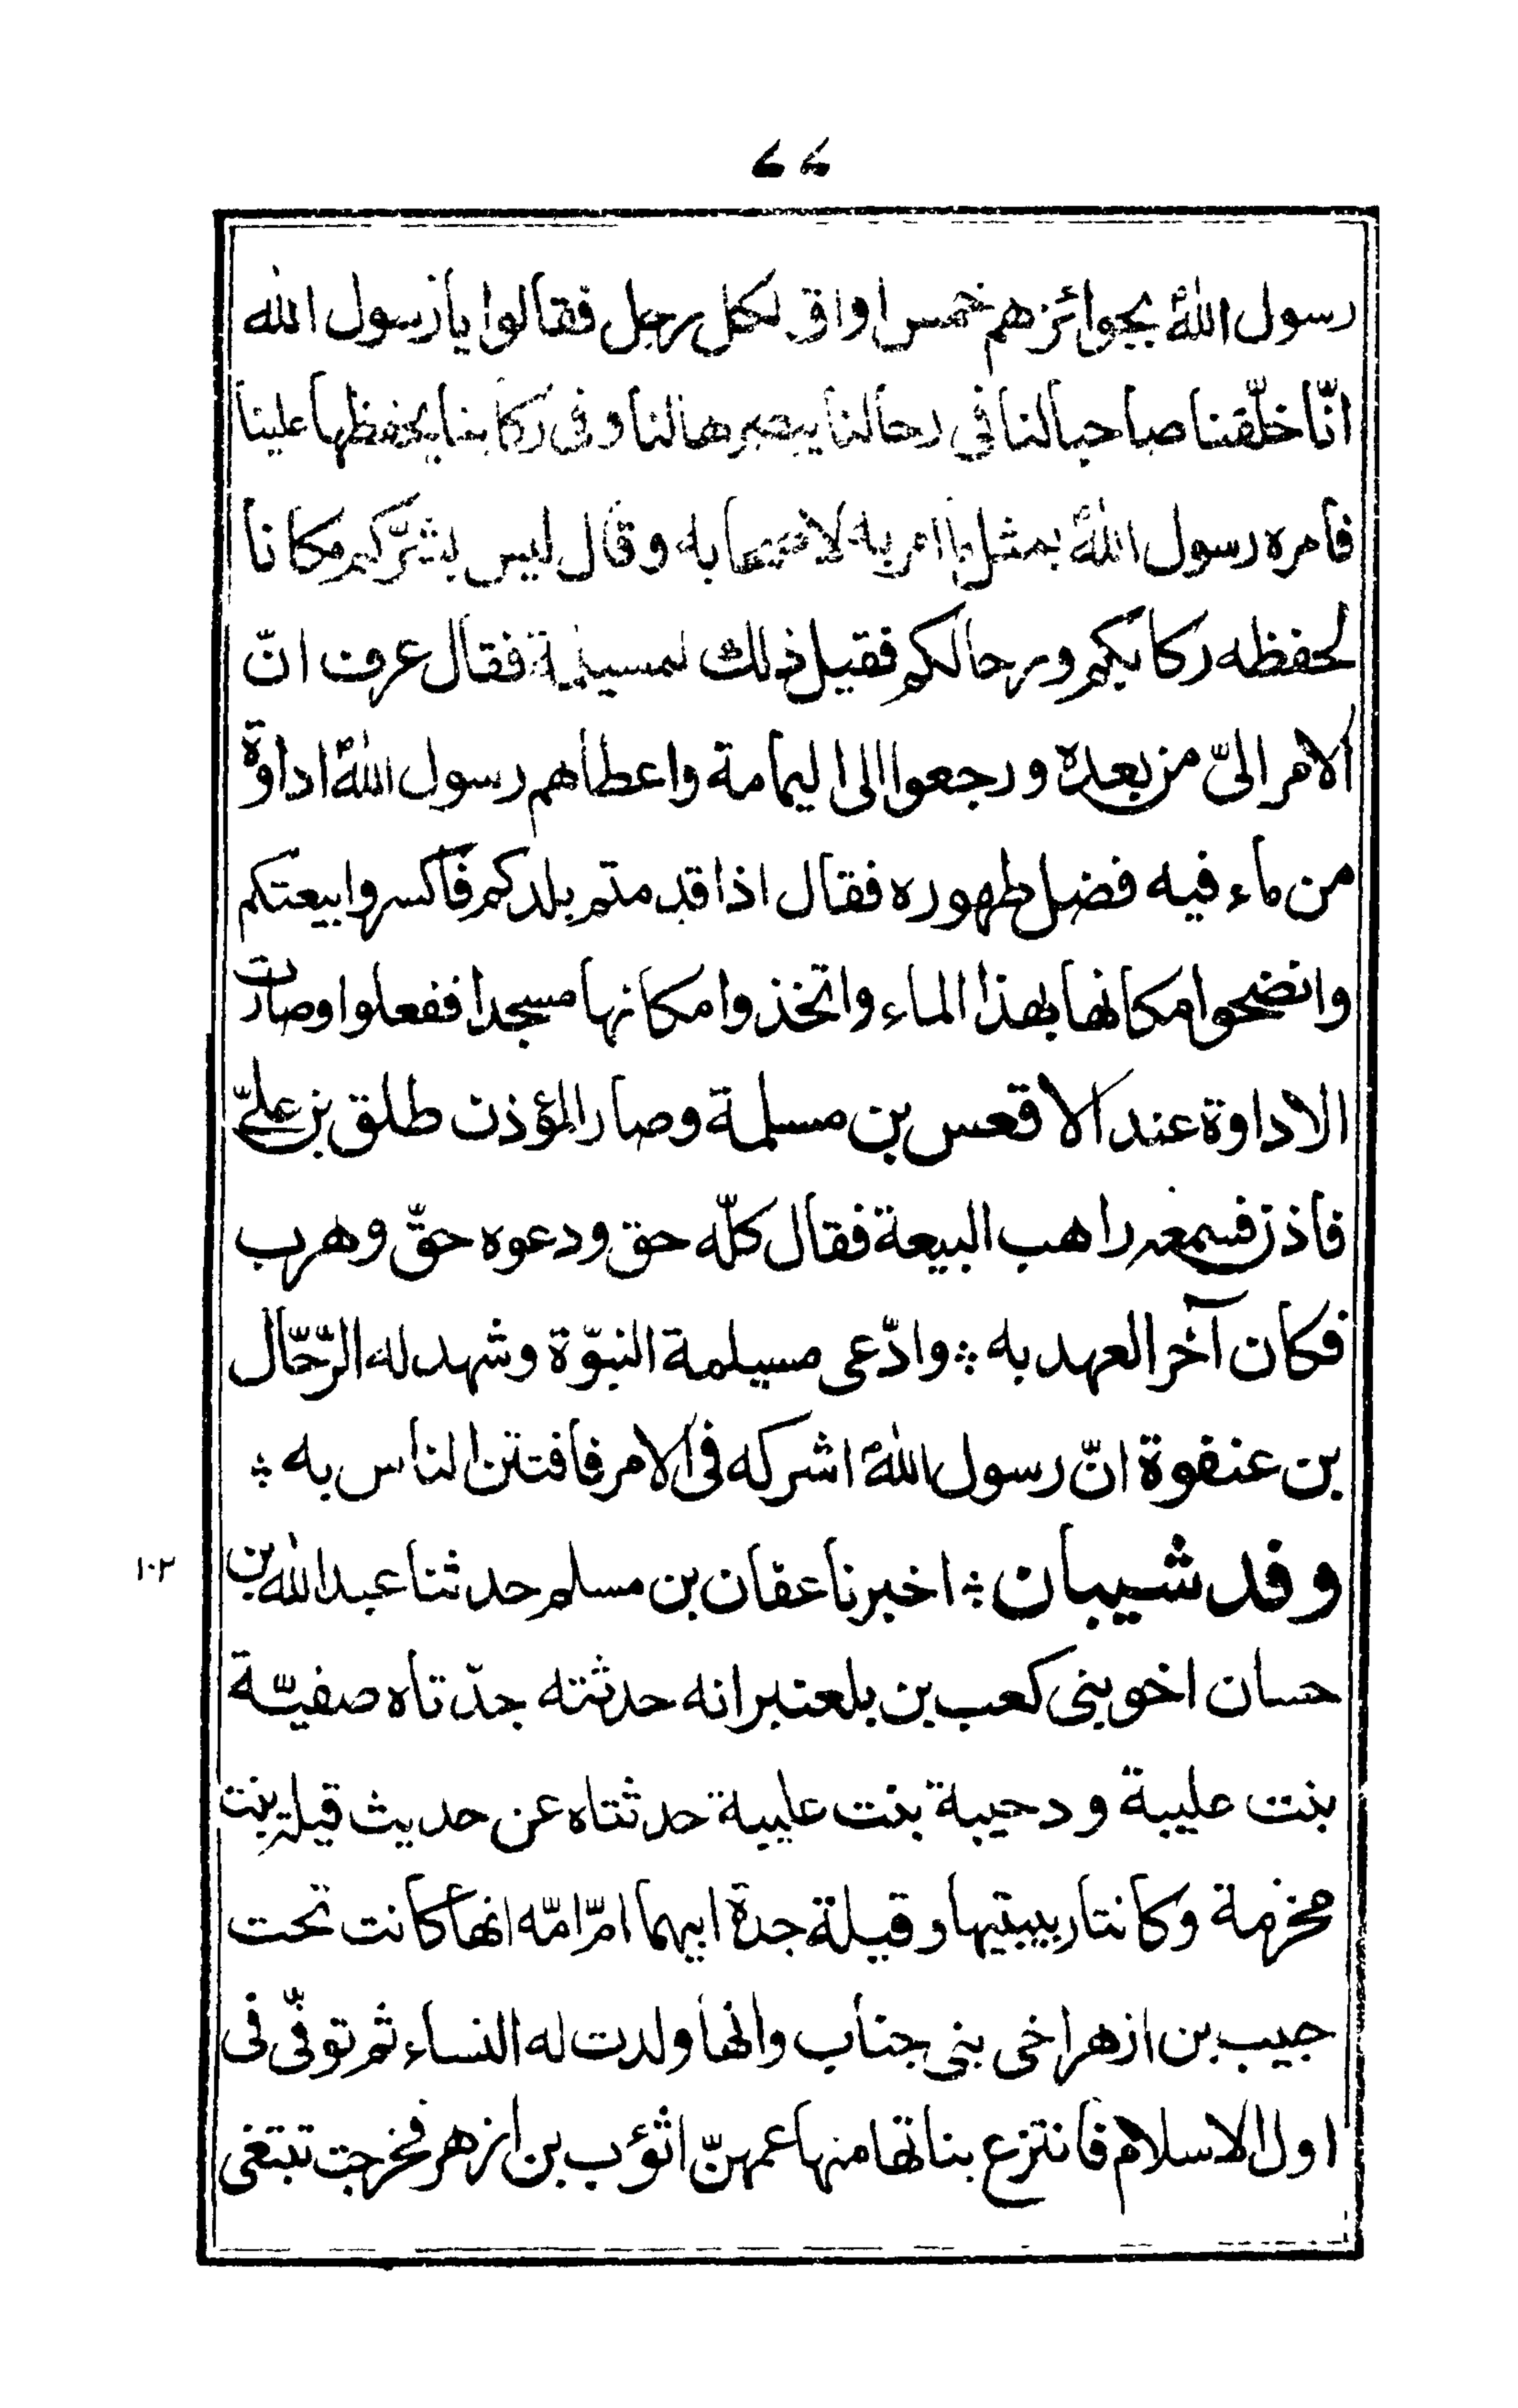 ٤٤
رسول اللهؐ بجوائزهم خمس اواق لكل رجل فقالوا يا رسول الله
انّا خلّفنا صاحبا لنا فى رحالنا يبصرها لنا وفى ركابنا يحفظها علينا
فامره رسول اللهؐ بمثل ما امر به لاصحابه وقال ليس بشرّكم مكانا
لحفظه ركابكم ورحالكم فقيل ذلك لمسيلمة فقال عرف انّ
الامر الىّ من بعده ورجعوا الى اليمامة واعطاهم رسول اللهؐ اداوة
من ماء فيه فضل طهوره فقال اذا قدمتم بلدكم فاكسروا بيعتكم
وانضحوا مكانها بهذا الماء واتخذوا مكانها مسجدا ففعلوا وصارت
الاداوة عند الاقعس بن مسلمة وصار المؤذن طلق بن علىّ
فاذن فسمعه راهب البيعة فقال كلّه حق ودعوه حقّ وهرب
فكان آخر العهد به ؞ وادّعى مسيلمة النبوّة وشهد له الرّحّال
بن عنفوة انّ رسول اللهؐ اشركه فى الامر فافتتن الناس به ؞
وفد شيبان ؞ اخبرنا عفان بن مسلم حدثنا عبد الله بن
١٠٢
حسان اخو بنى كعب بن بلعنبر انه حدثته جدّتاه صفيّة
بنت عليبة ودحيبة بنت عليبة حدثتاه عن حديث قيلة بنت
مخزمة وكانتا ربيبتيها وقيلة جدة ابيهما امّ امّه انها كانت تحت
حبيب بن ازهر اخى بنى جناب وانها ولدت له النساء ثم توفّى فى
اول الاسلام فانتزع بناتها منها عمهنّ اثؤب بن ازهر فخرجت تبتغى